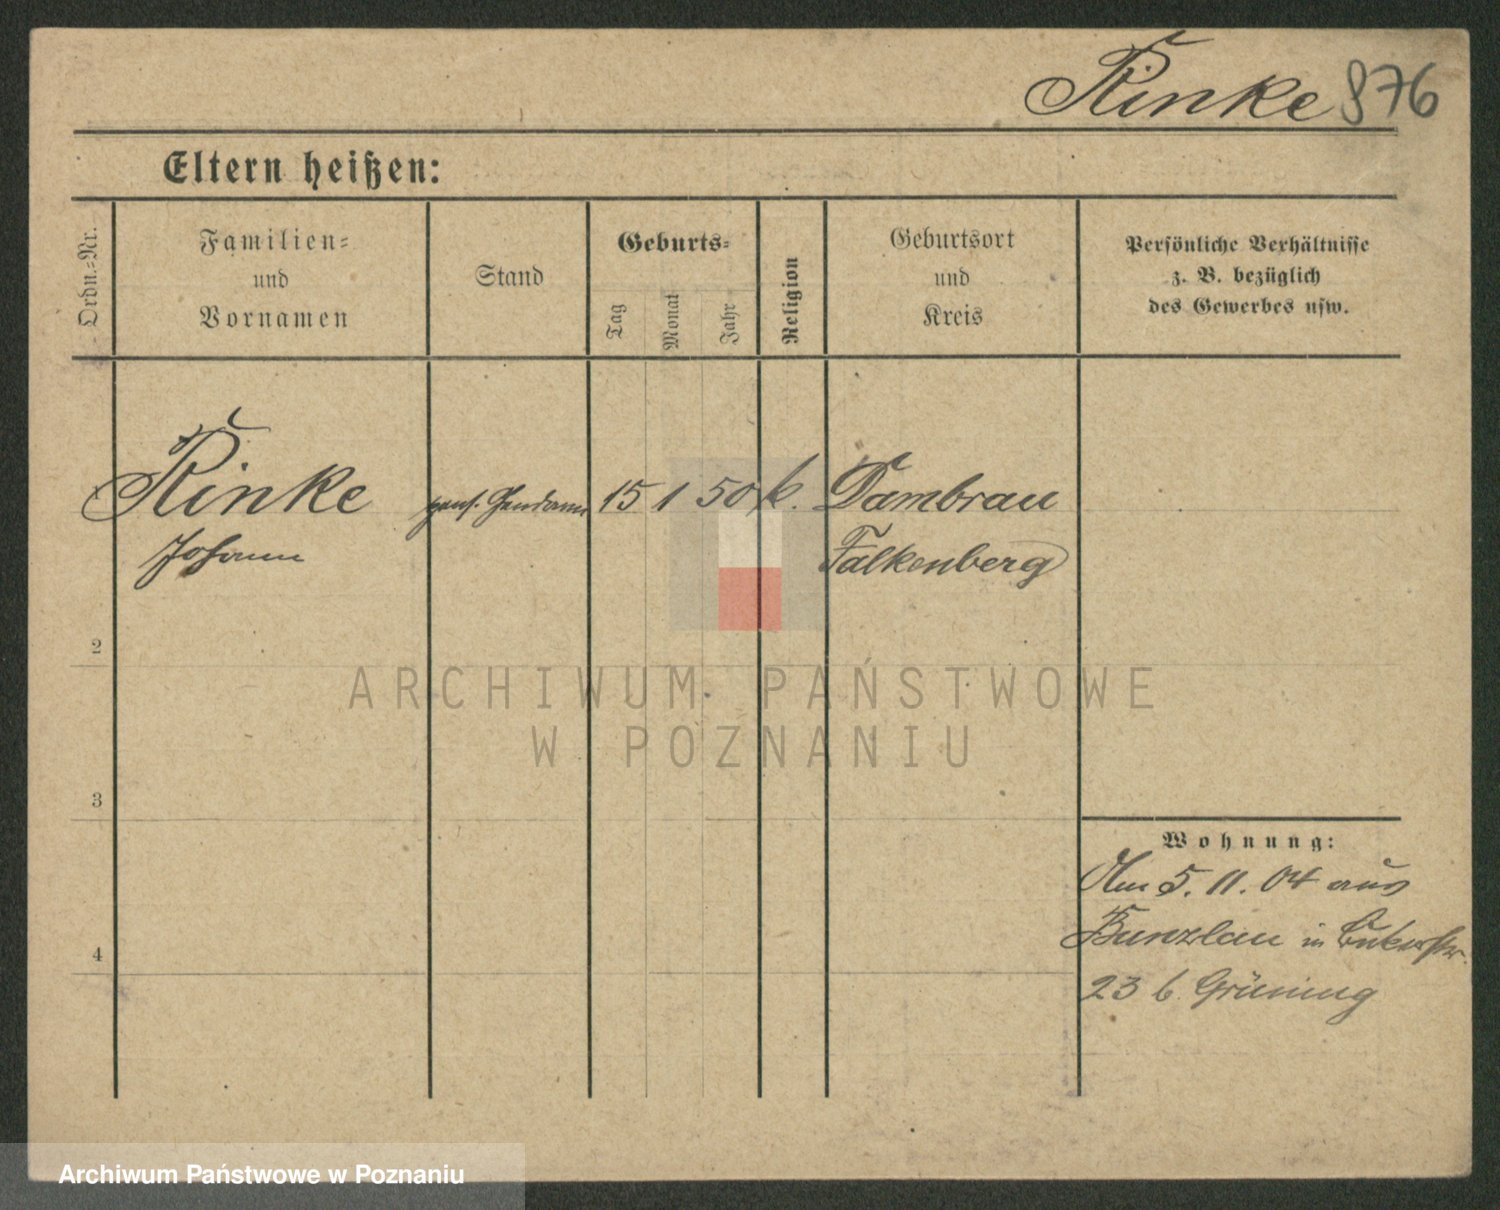 Rinke 876
Eltern heißen:
Ordn.-Nr.
Familien-
und
Vornamen
Stand
Geburts-
Tag
Monat
Jahr
Religion
Geburtsort
und
Kreis
Persönliche Verhältnisse
z. B. bezüglich
des Gewerbes usw.
Rinke pens. Gendarm 15 1 50 k. Dambrau
Johann Falkenberg
2
3
4
ARCHIWUM PAŃSTWOWE
W POZNANIU
Wohnung:
Am 5. 11. 04 aus
Bunzlau in
23 b. Grüning
Archiwum Państwowe w Poznaniu